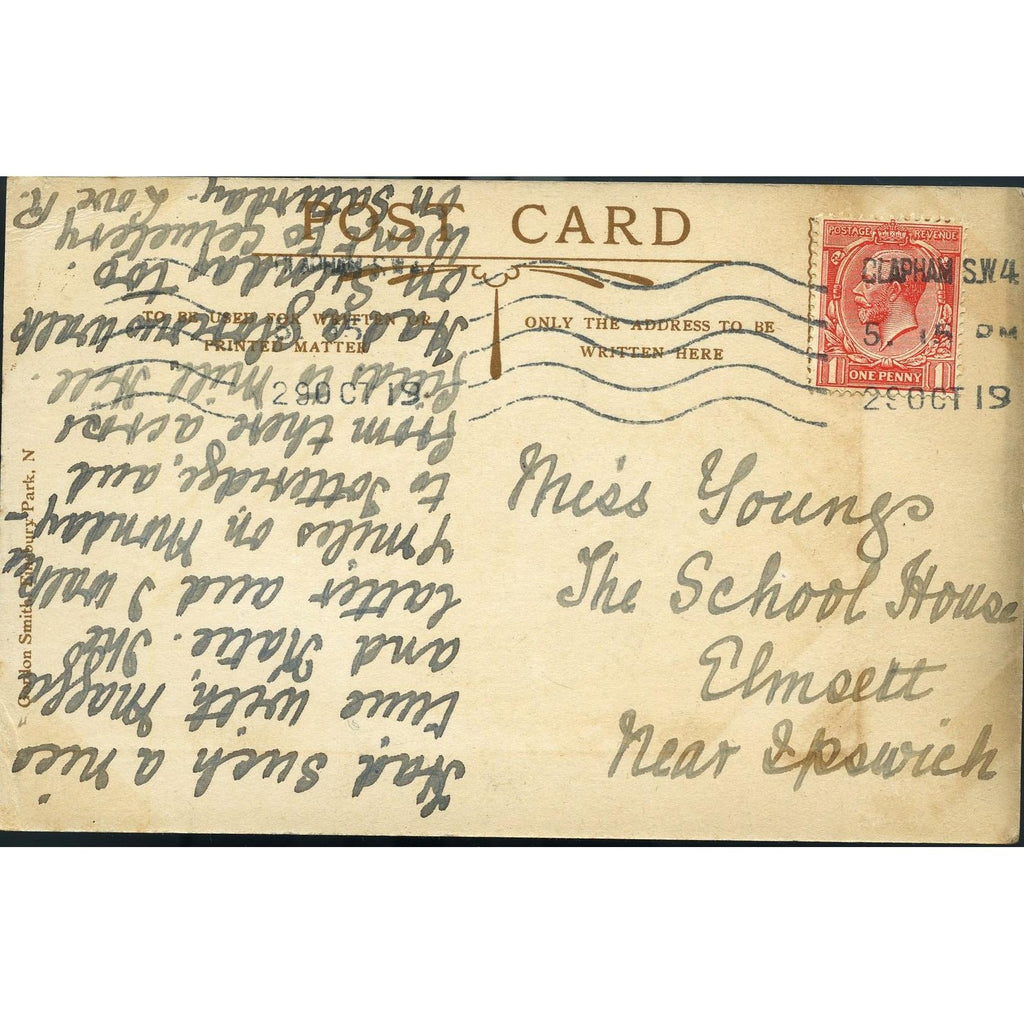 POST CARD
TO BE USED FOR WRITTEN OR
PRINTED MATTER
ONLY THE ADDRESS TO BE
WRITTEN HERE
POSTAGE REVENUE
ONE PENNY
1 1
CLAPHAM S.W.4
5. 15 PM
29 OCT 19
CLAPHAM S.W.4
29 OCT 19
Miss Youngs
The School House
Elmsett
Near Ipswich
Had such a nice
time with Maggs
and Katie. The
latter and I walked
7 miles on Monday
to Totteridge, and
from there across
fields to Mill Hill.
Had glorious walk
on Sunday too.
Went to Cemetery
on Saturday. Love R.
Gordon Smith, Finsbury Park, N